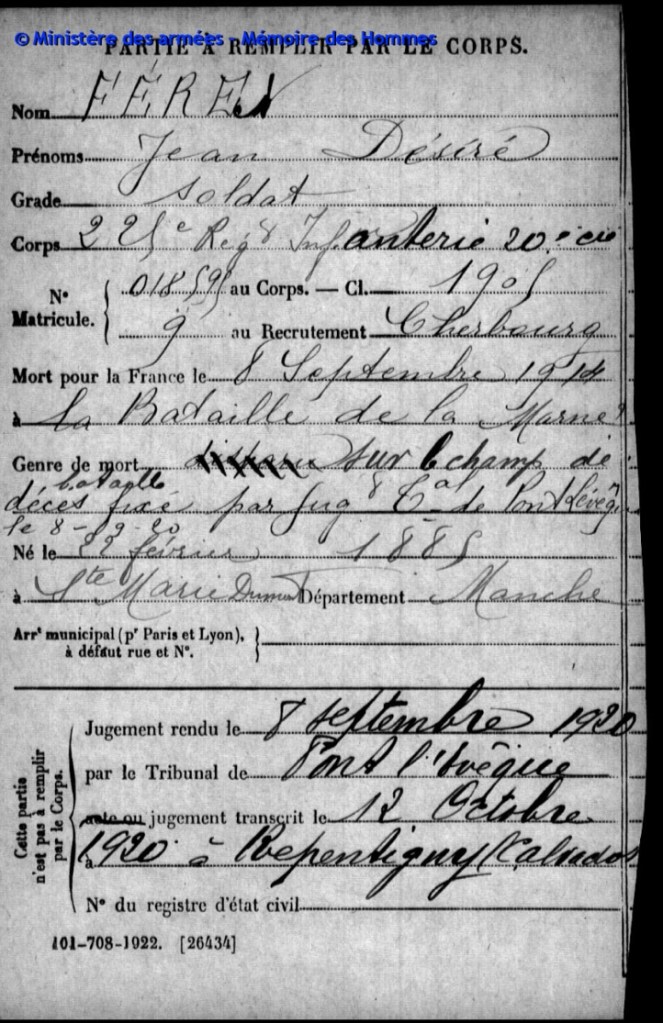 © Ministère des armées - Mémoire des Hommes
PARTIE À REMPLIR PAR LE CORPS.
Nom FÉREY
Prénoms Jean Désiré
Grade soldat
Corps 225e Regt Infanterie 20e cie
N° Matricule. 01859 au Corps. — Cl. 1905
9 au Recrutement Cherbourg
Mort pour la France le 8 Septembre 1914
à la Bataille de la Marne
Genre de mort sur le champ de
bataille
décès fixé par Jugt de Pont Lévêque
le 8-9-20
Né le 22 février 1885
à Ste Marie Dumont Département Manche
Arrt municipal (pr Paris et Lyon),
à défaut rue et N°.
Cette partie
n'est pas à remplir
par le Corps.
Jugement rendu le 8 septembre 1920
par le Tribunal de Pont l'Evêque
acte ou jugement transcrit le 12 Octobre
à 1920 à Repentigny (Calvados
N° du registre d'état civil
101-708-1922. [26434]